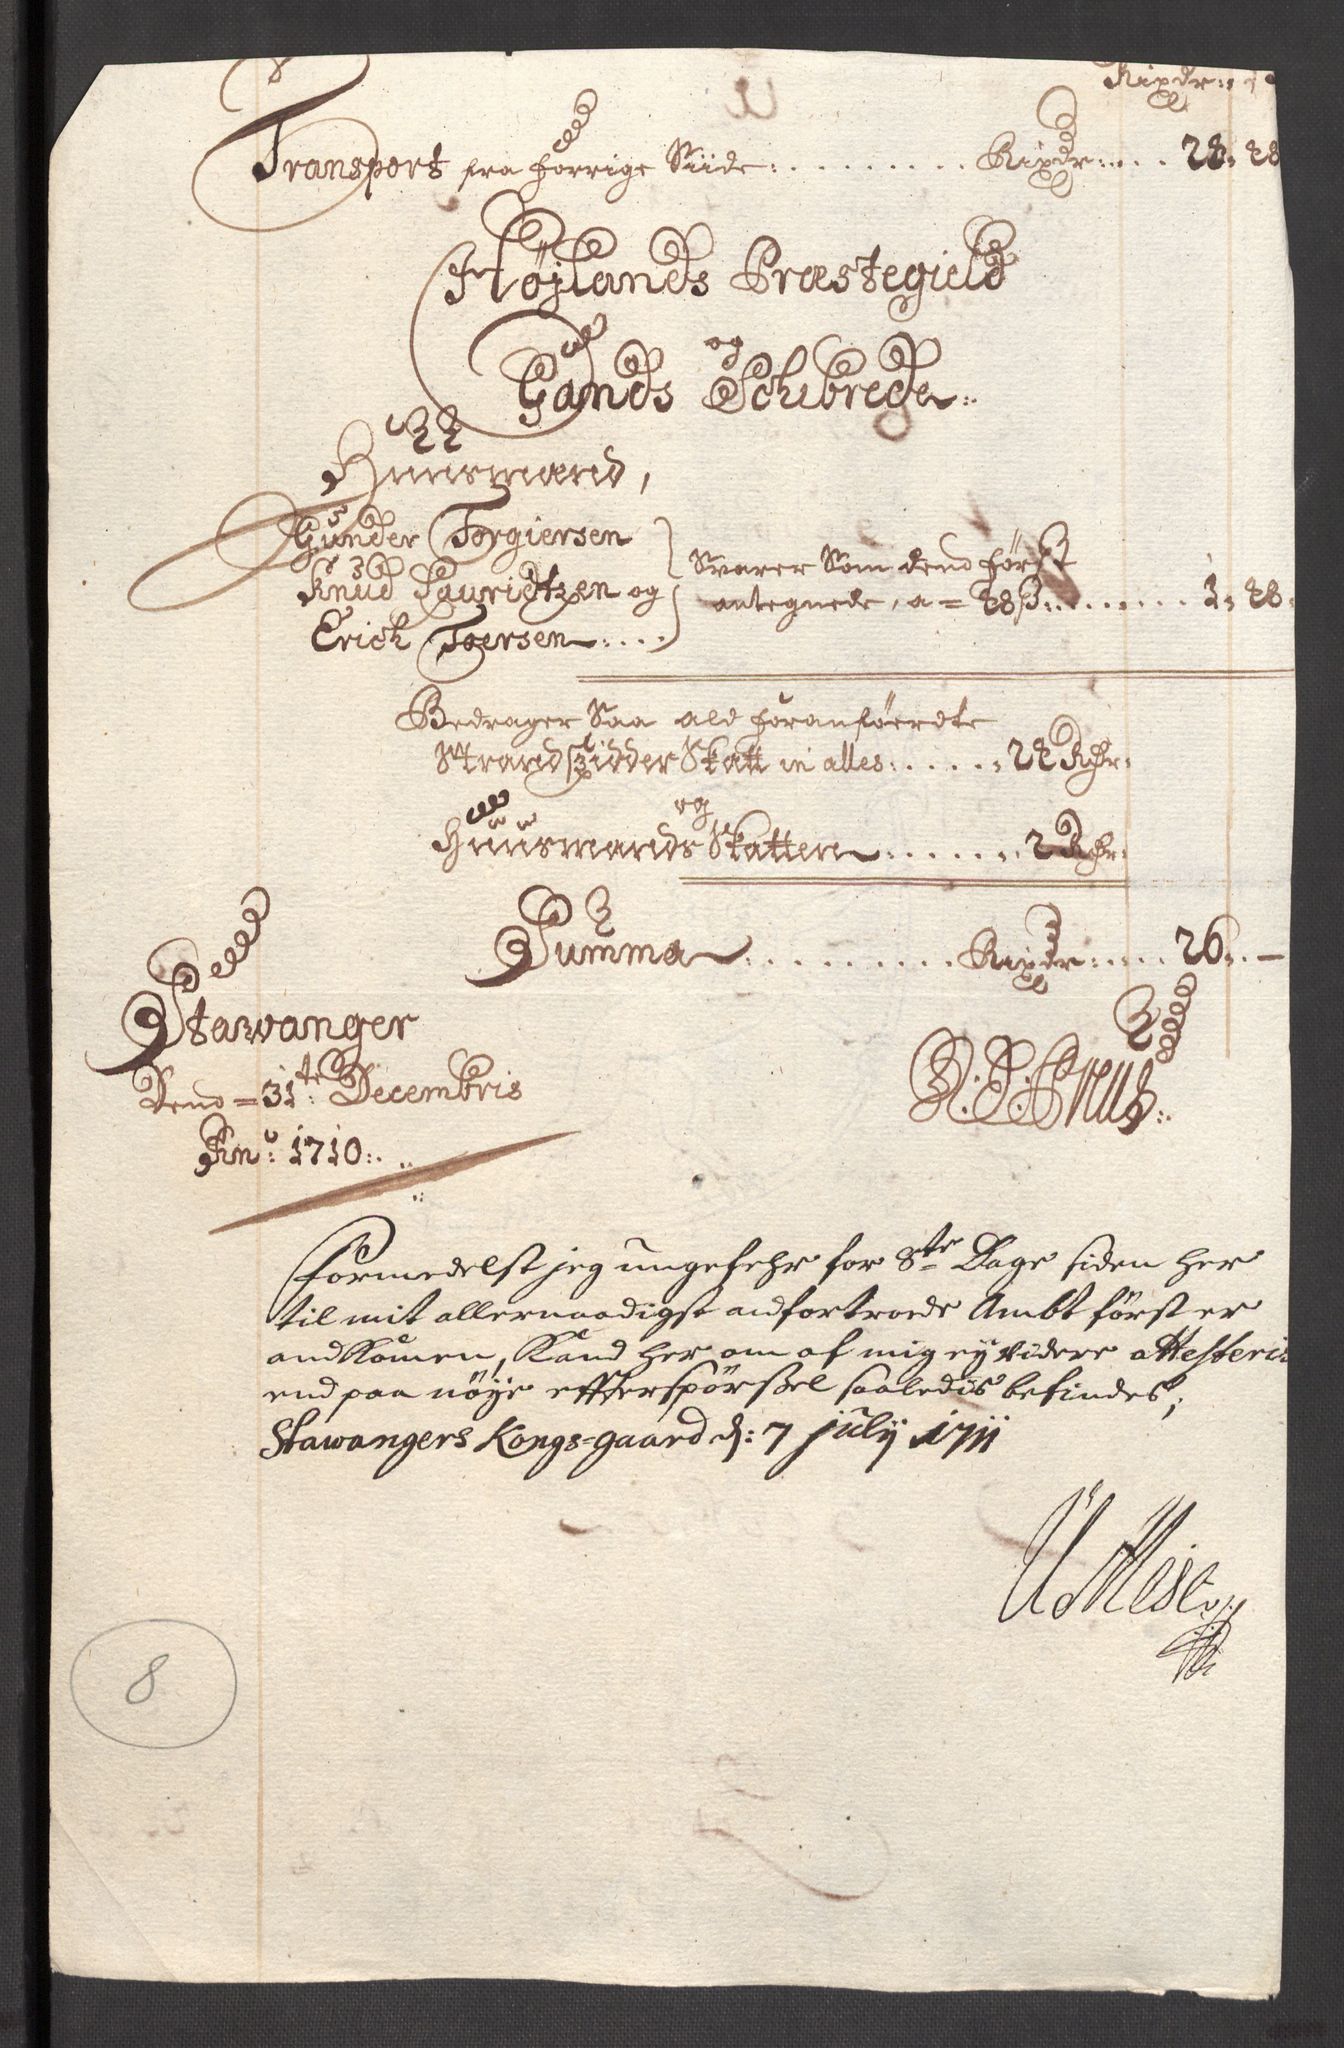 Rixdr:
Transport fra forrige Siide: . . . . . . . . Rixdr: . . . 24. 48
Höjlands Præstegield
og
Gands Schibrede:
Huusmænd,
Gunder Torgiersen
Knud Lauridtzen og
Erich Toersen . . . .
Svarer Som dend först
antegnede, a = 48 ß . . . . . . . 1. 48.
Bedrager Saa ald foranföerdte
Strandsidder Skatt in alles: . . . . . 24 Rdr:
og
Huusmands Skatten . . . . . . 2 Rdr:
Summa . . . . . . . . . Rixdr: . . . . 26. . —
Stawanger
Dend = 31te: Decembris
An̄o: 1710:.
Formedelst jeg ungefehr for 8te Dage siden her
til mit allernaadigst anfortroede Ambt först er
andkom̄en, Kand her om af mig ey videre attesteris
end paa nöye effterspörsel saaledis befindes;
Stawangers Kongs=gaard d: 7 julij 1711
8